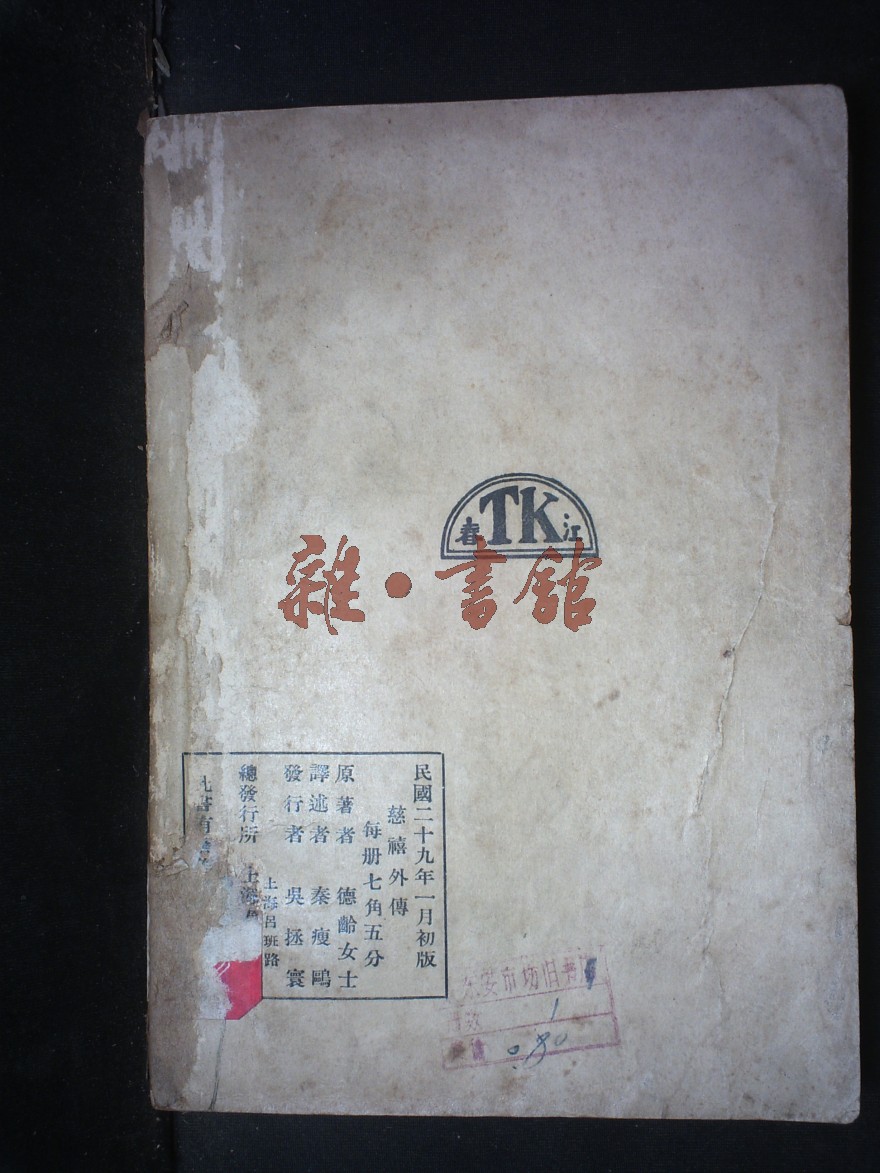 春TK江
雜·書館
民國二十九年一月初版
慈禧外傳
每册七角五分
原著者 德齡女士
譯述者 秦瘦鷗
發行者 吳拯寰
上海呂班路
總發行所 上海
此書有
市場旧書
1
0.80